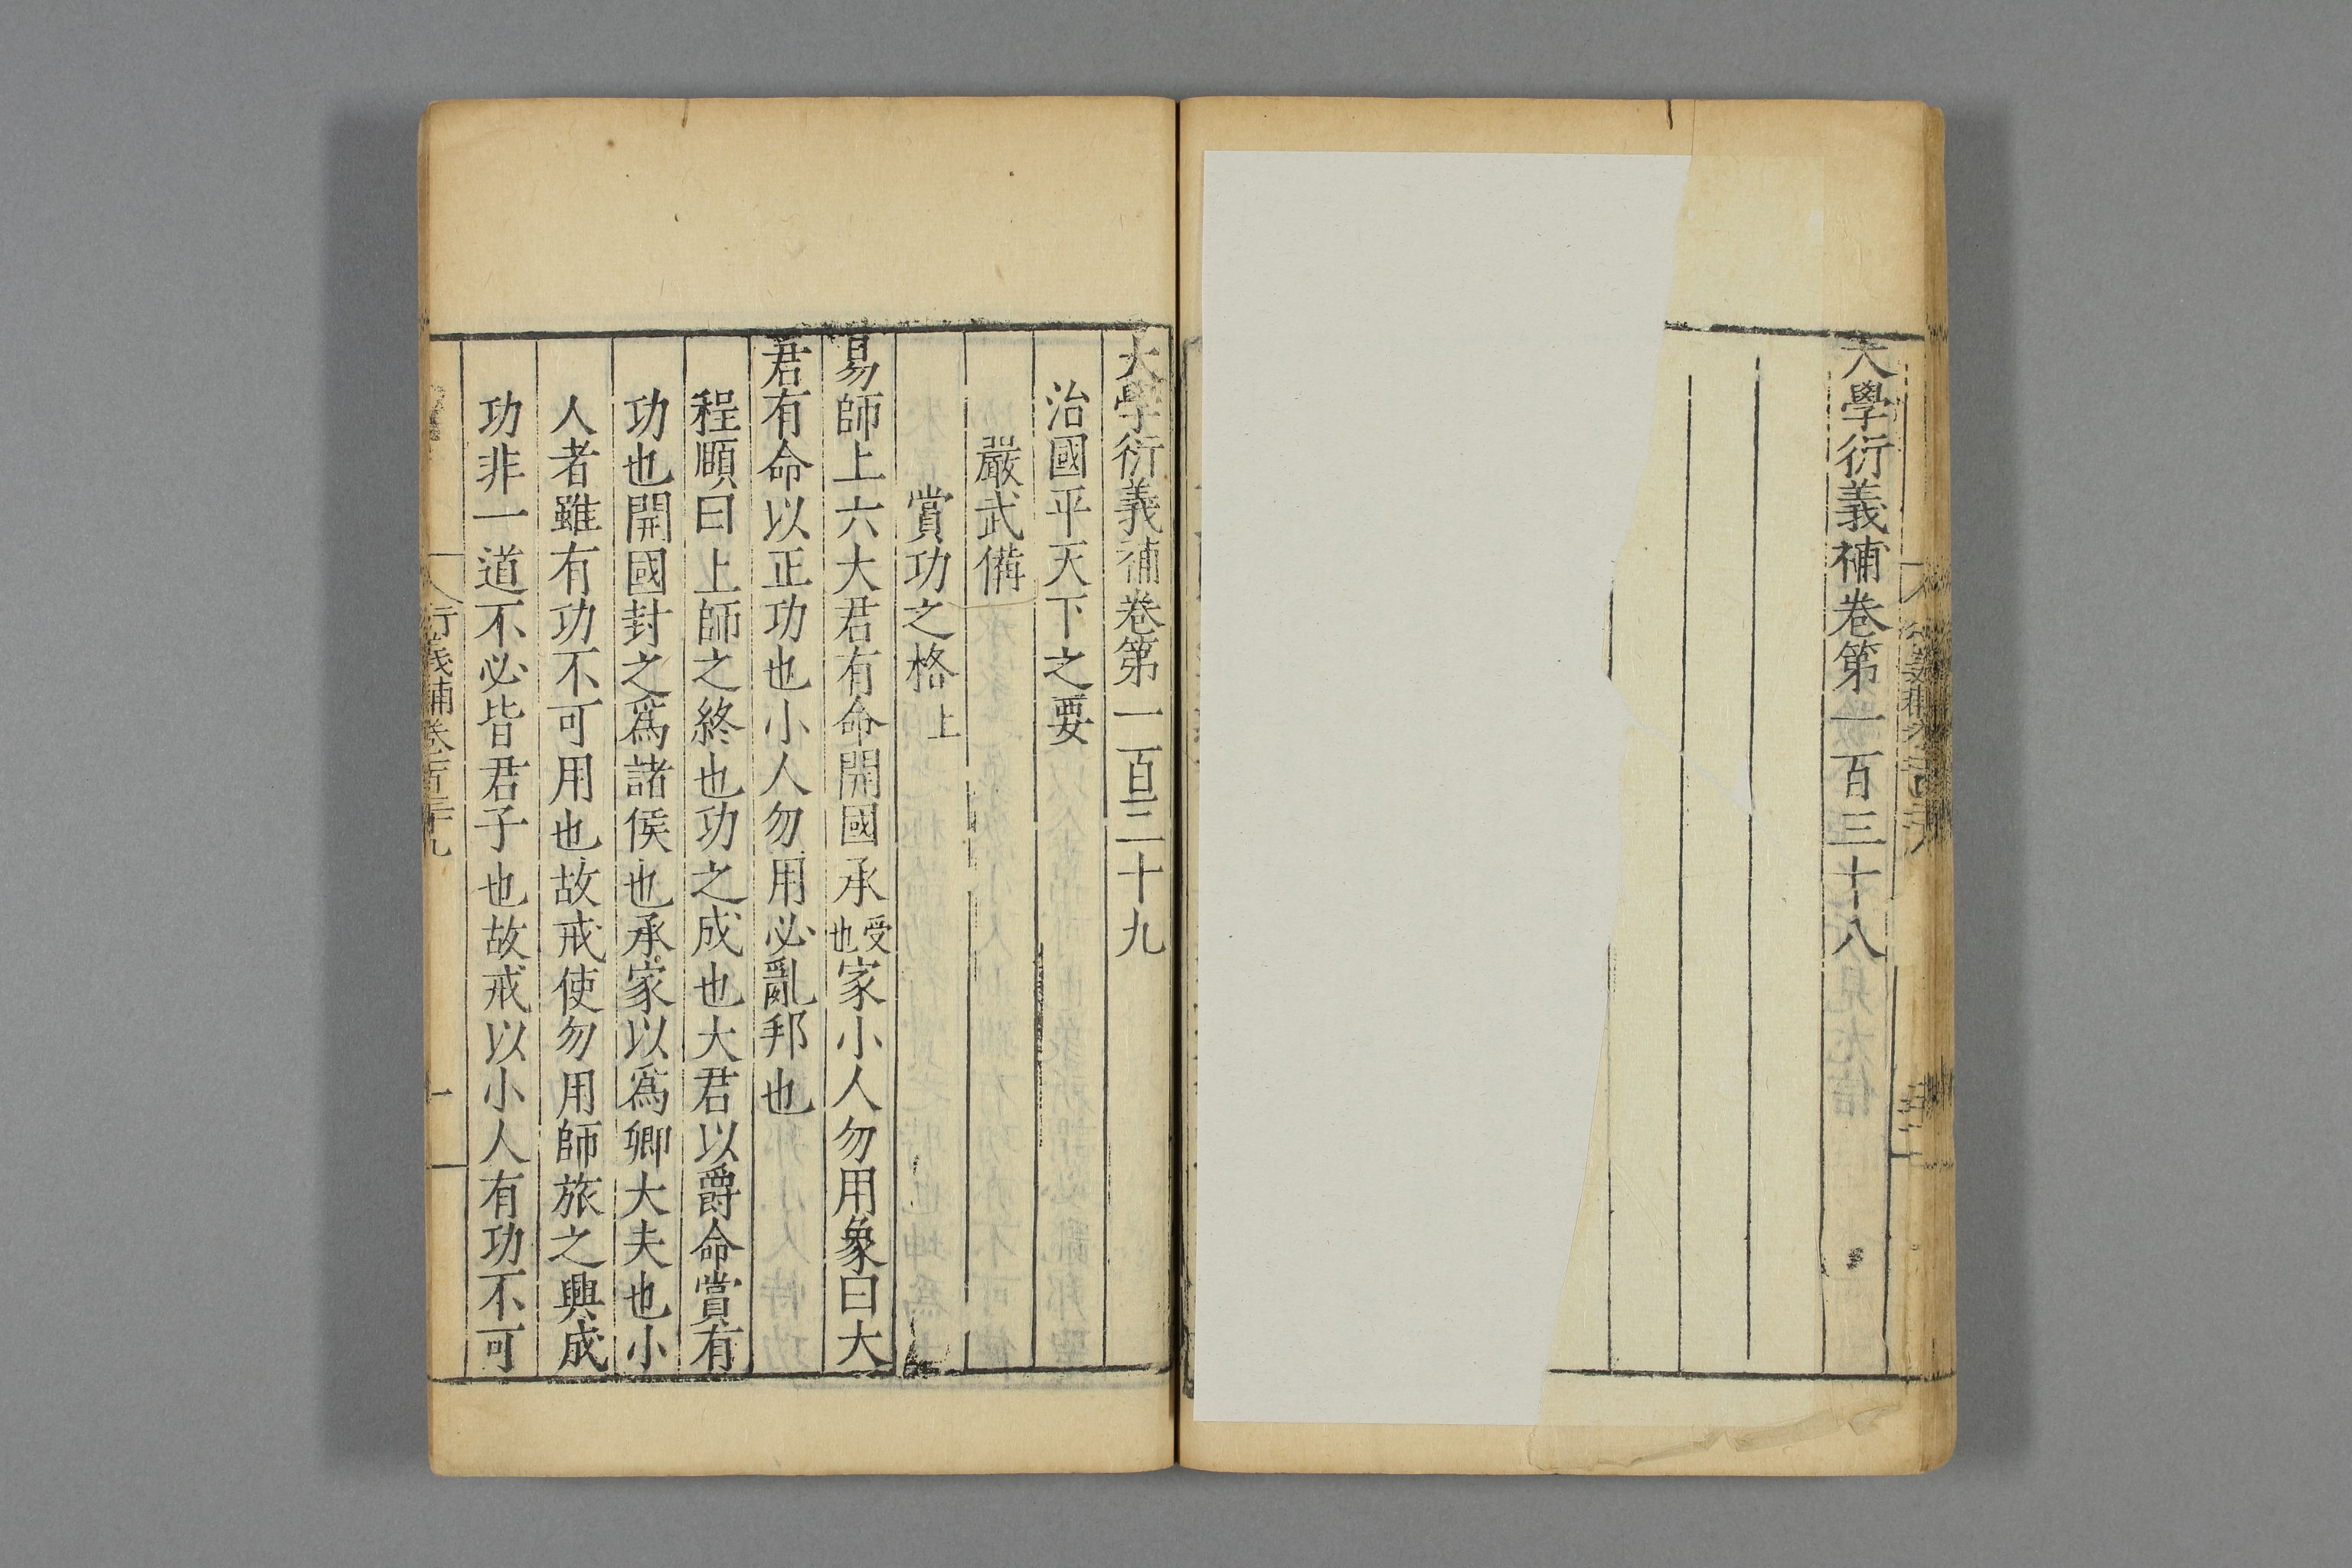 大學衍義補卷第一百三十八
大學衍義補卷第一百三十九
治國平天下之要
嚴武備
賞功之格上
易師上六大君有命開國承受也家小人勿用象曰大
君有命以正功也小人勿用必亂邦也
程頤曰上師之終也功之成也大君以爵命賞有
功也開國封之爲諸侯也承家以爲卿大夫也小
人者雖有功不可用也故戒使勿用師旅之興成
功非一道不必皆君子也故戒以小人有功不可